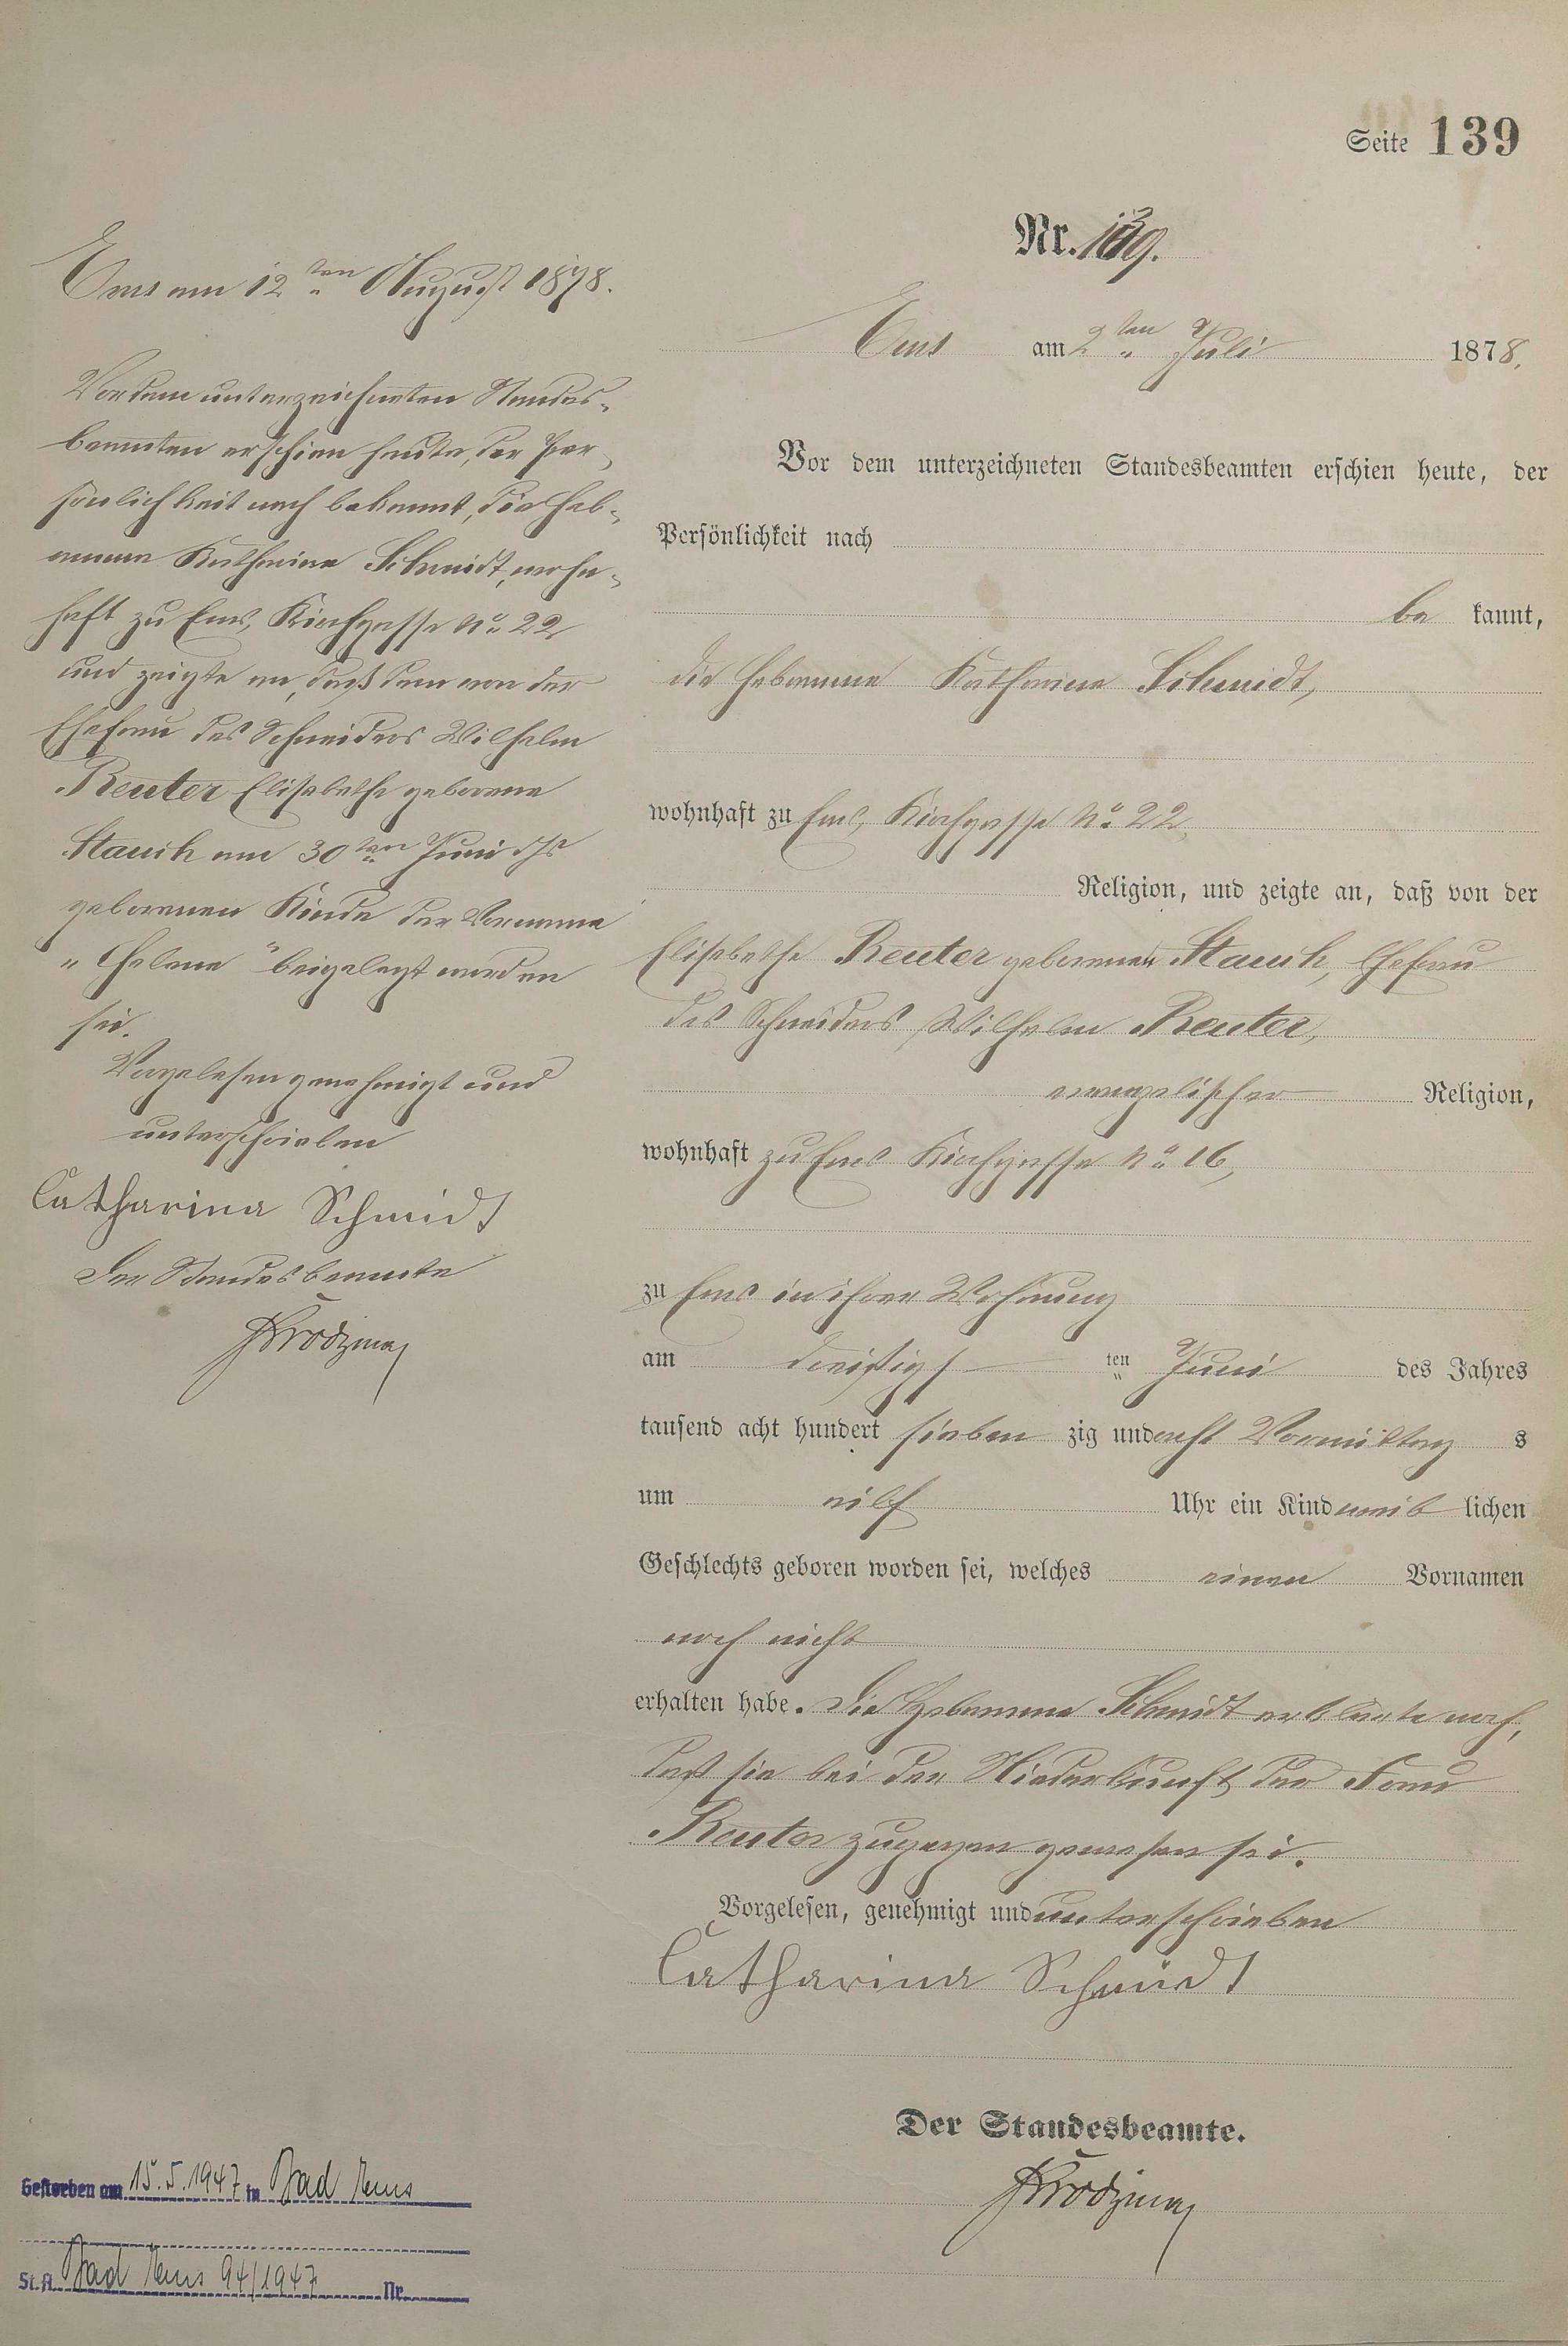 Seite 139
Nr. 139.
Ems am 2ten Juli 1878.
Vor dem unterzeichneten Standesbeamten erschien heute, der
Persönlichkeit nach
be kannt,
die Hebamme Katharina Schmidt,
wohnhaft zu Ems, Kirchgasse No 22
Religion, und zeigte an, daß von der
Elisabethe Reuter geborenen Stauch, Ehefrau
des Schneiders Wilhelm Reuter,
evangelischer Religion,
wohnhaft zu Ems Kirchgasse No 16,
zu Ems in ihrer Wohnung
am dreißigs ten Juni des Jahres
tausend acht hundert sieben zig und acht Vormittag s
um eilf Uhr ein Kind weib lichen
Geschlechts geboren worden sei, welches einen Vornamen
noch nicht
erhalten habe. Die Hebamme Schmidt erklärte noch,
daß sie bei der Niederkunft der Frau
Reuter zugegen gewesen sei.
Vorgelesen, genehmigt und unterschrieben
Catharina Schmidt
Der Standesbeamte.
Ems am 12ten August 1878.
Vor dem unterzeichneten Standes-
beamten erschien heute, der Per-
sönlichkeit nach bekannt, die Heb-
amme Katharina Schmidt, wohn-
haft zu Ems, Kirchgasse No 22
und zeigte an, daß dem von der
Ehefrau des Schneiders Wilhelm
Reuter Elisabethe geborene
Stauch am 30ten Juni ds Js
geborenen Kinde der Vorname
"Helene" beigelegt worden
sei.
Vorgelesen genehmigt und
unterschrieben
Catharina Schmidt
Der Standesbeamte
Gestorben am 15.5.1947 in Bad Ems
St.A. Bad Ems 94/1947 Nr.